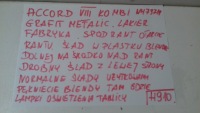 ACCORD VIII KOMBI
GRAFIT METALIC LAKIER
FABRYKA SPOD RANT
RANTU ŚLAD W PLASTIKU
DOLNEJ NA ŚRODKU NAD RANT
DROBNY ŚLAD Z LEWEJ STRONY
NORMALNE ŚLADY UŻYTKOWAN
PĘKNIĘCIE BLENDY TAM GDZIE
LAMPKI OŚWIETLENIA TABLICY
H910